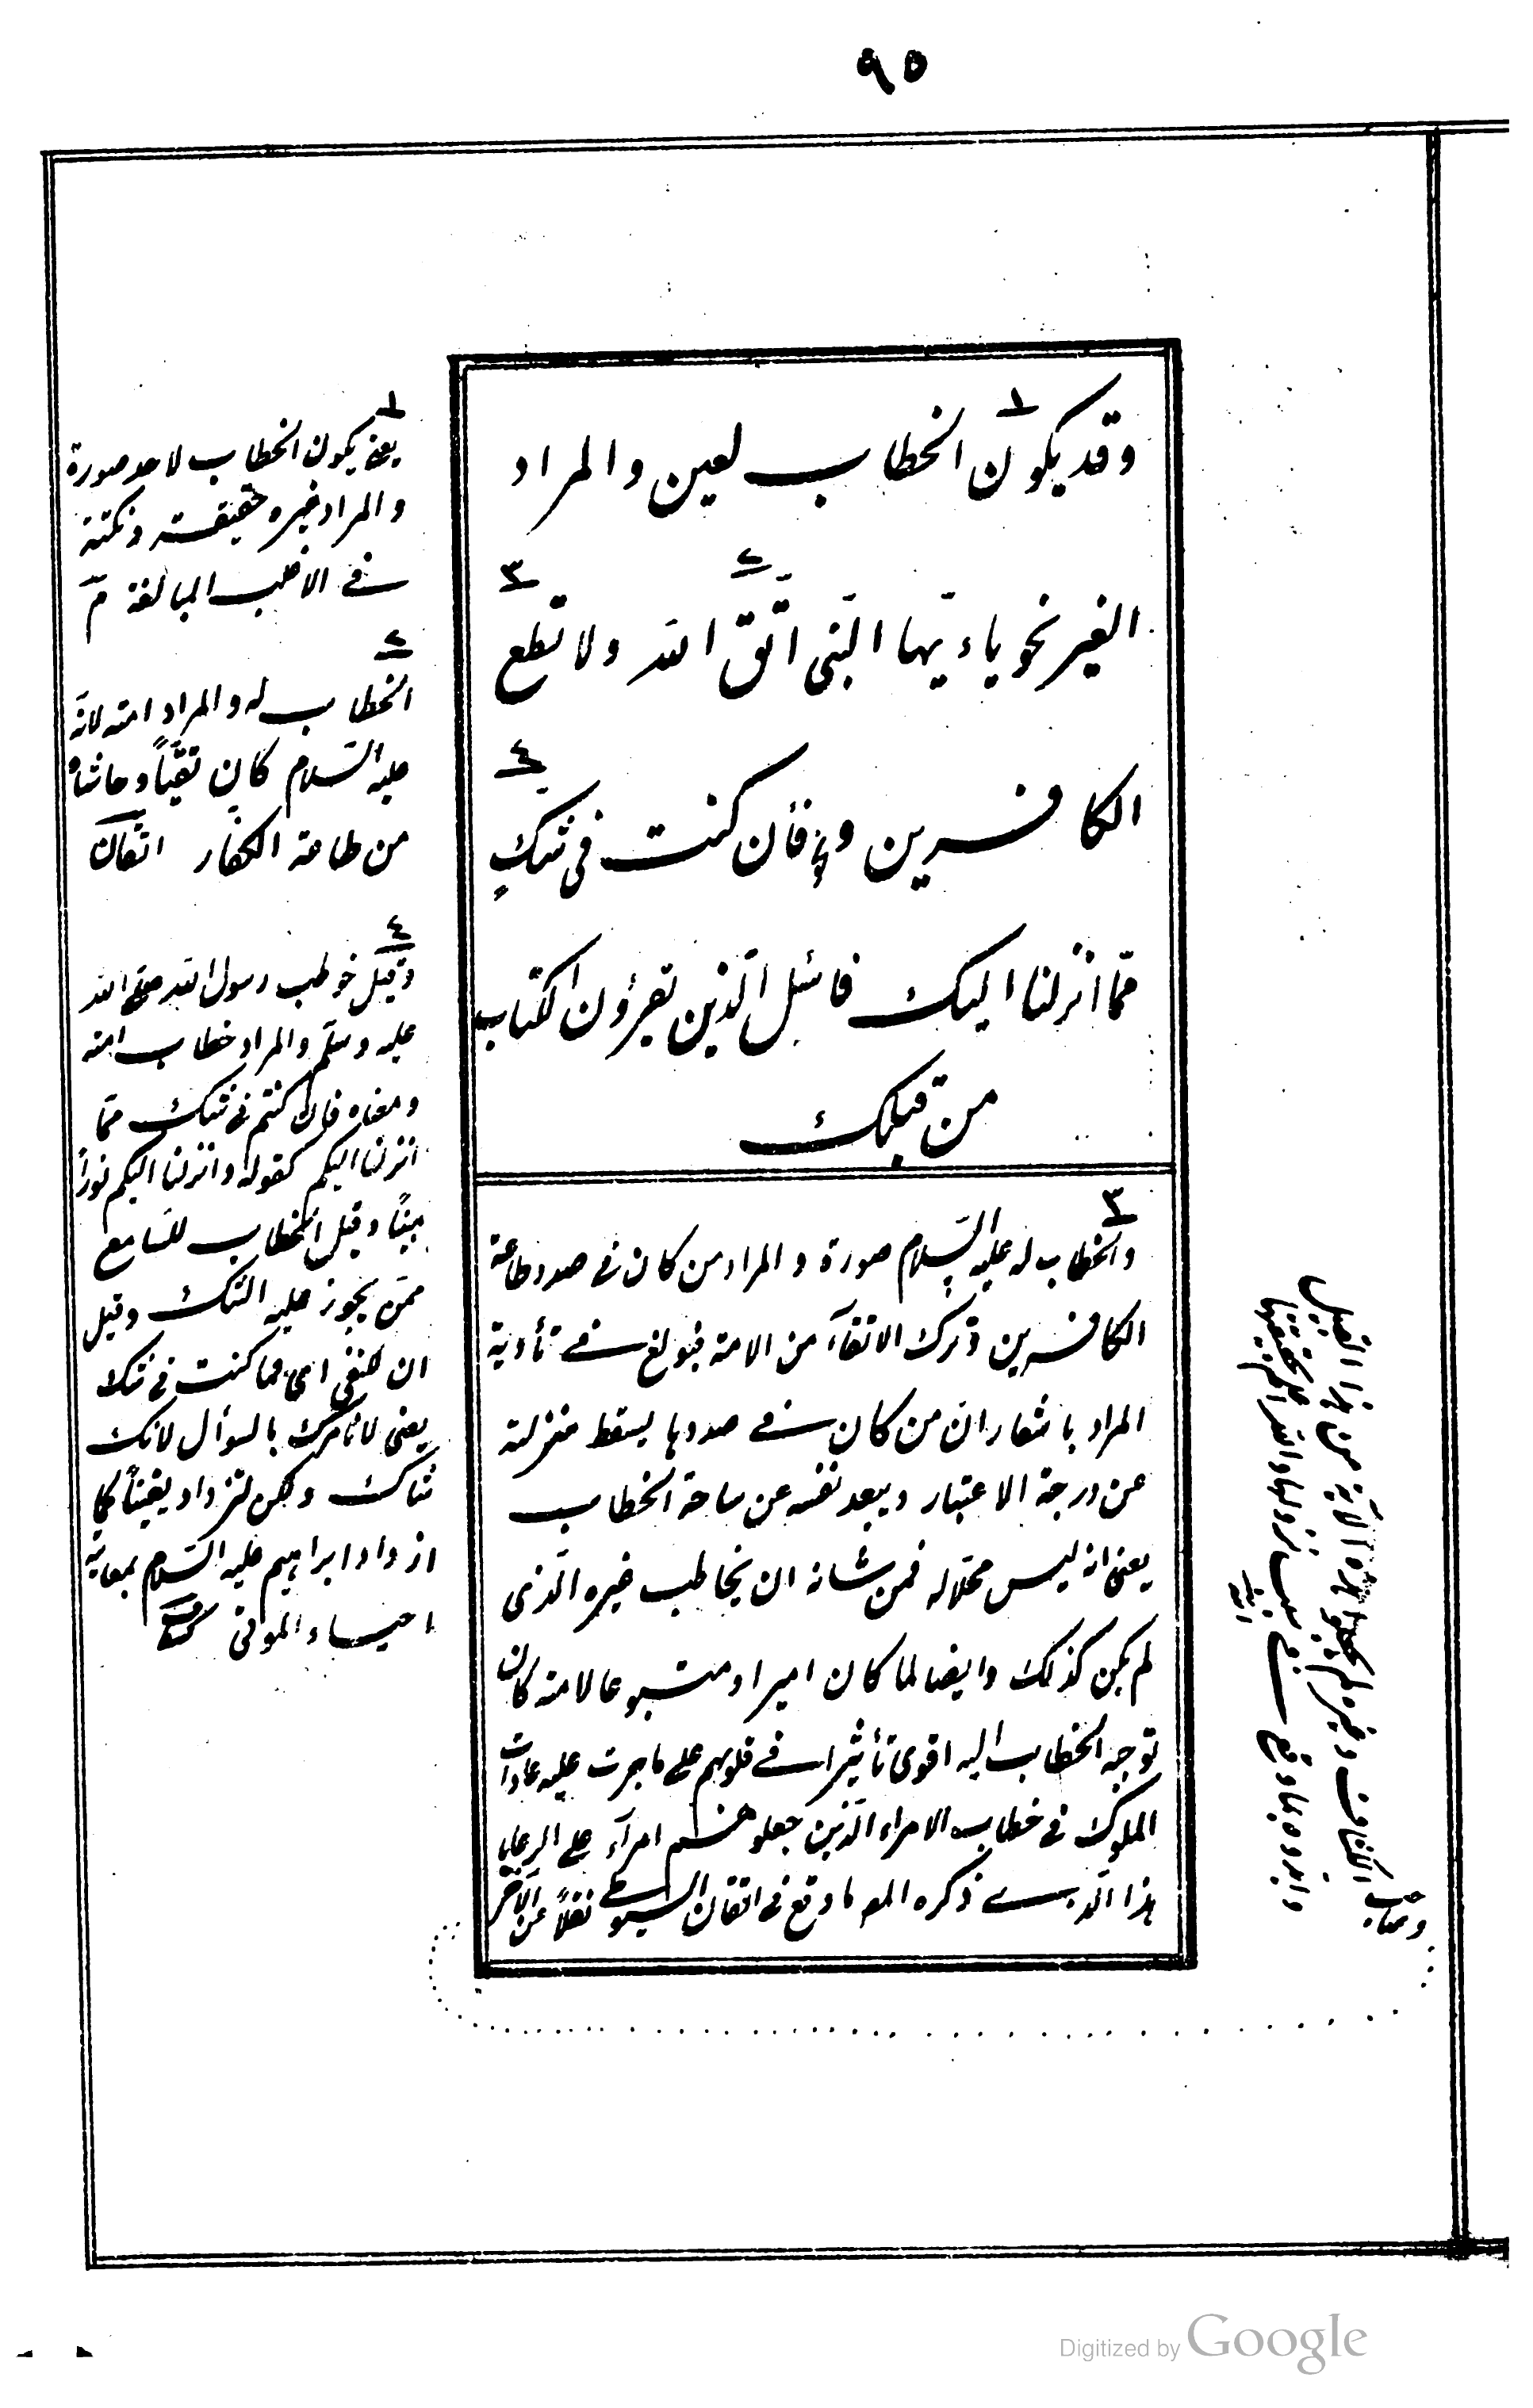 ٩٥
١
وقد يكون الخطاب لعين والمراد
٢ ٣
الغير نحو ياءيّها النّبى اتّق الله ولا تطع
٤
الكافرين و فأن كنت فى شكٍ
ممّا انزلنا اليك فاسئل الّذين يقرؤن الكتاب
من قبلك
٣
والخطاب له عليه السّلام صورة والمراد من كان فى صدد طاعة
الكافرين وترك الاتقآء من الامة فبولغ فى تأدية
المراد باشعار انّ من كان فى صددها يسقط منزلته
عن درجة الاعتبار ويبعد نفسه عن ساحة الخطاب
يعنى انه ليس محلا له فمن شانه ان يخاطب غيره الّذى
لم يكن كذلك وايضا لما كان اميرا ومتبوعا لامته كان
توجه الخطاب اليه اقوى تأثيرا فى قلوبهم على ما جرت عليه عادات
الملوك فى خطاب الامراء الّذين جعلوهم امرآء على الرعايا
هذا الّذى ذكره المص ما وقع فى اتقان السيوطى نقلاً عن الآخر
١
يعنى يكون الخطاب لاحد صورة
والمراد غيره حقيقة ونكتته
فى الاغلب المبالغة م
٢
الخطاب له والمراد امته لانّه
عليه السّلام كان تقيّاً وحاشاه
من طاعة الكفار اتقان
٤
وقيل خوطب رسول الله صلى الله
عليه وسلّم والمراد خطاب امته
ومعناه فان كنتم فى شك ممّا
انزلنا اليكم كقوله وانزلنا اليكم نوراً
مبيناً وقيل الخطاب للسّامع
ممّن يجوز عليه الشك وقيل
ان للنفى اى فما كنت فى شك
يعنى لا نأمرك بالسوأل لانك
شاك ولكن لتزداد يقيناً كما
ازداد ابراهيم عليه السّلام بمعاينة
احياء الموتى
من هذا القبيل
والله اعلم بحقيقتها
Digitized by Google